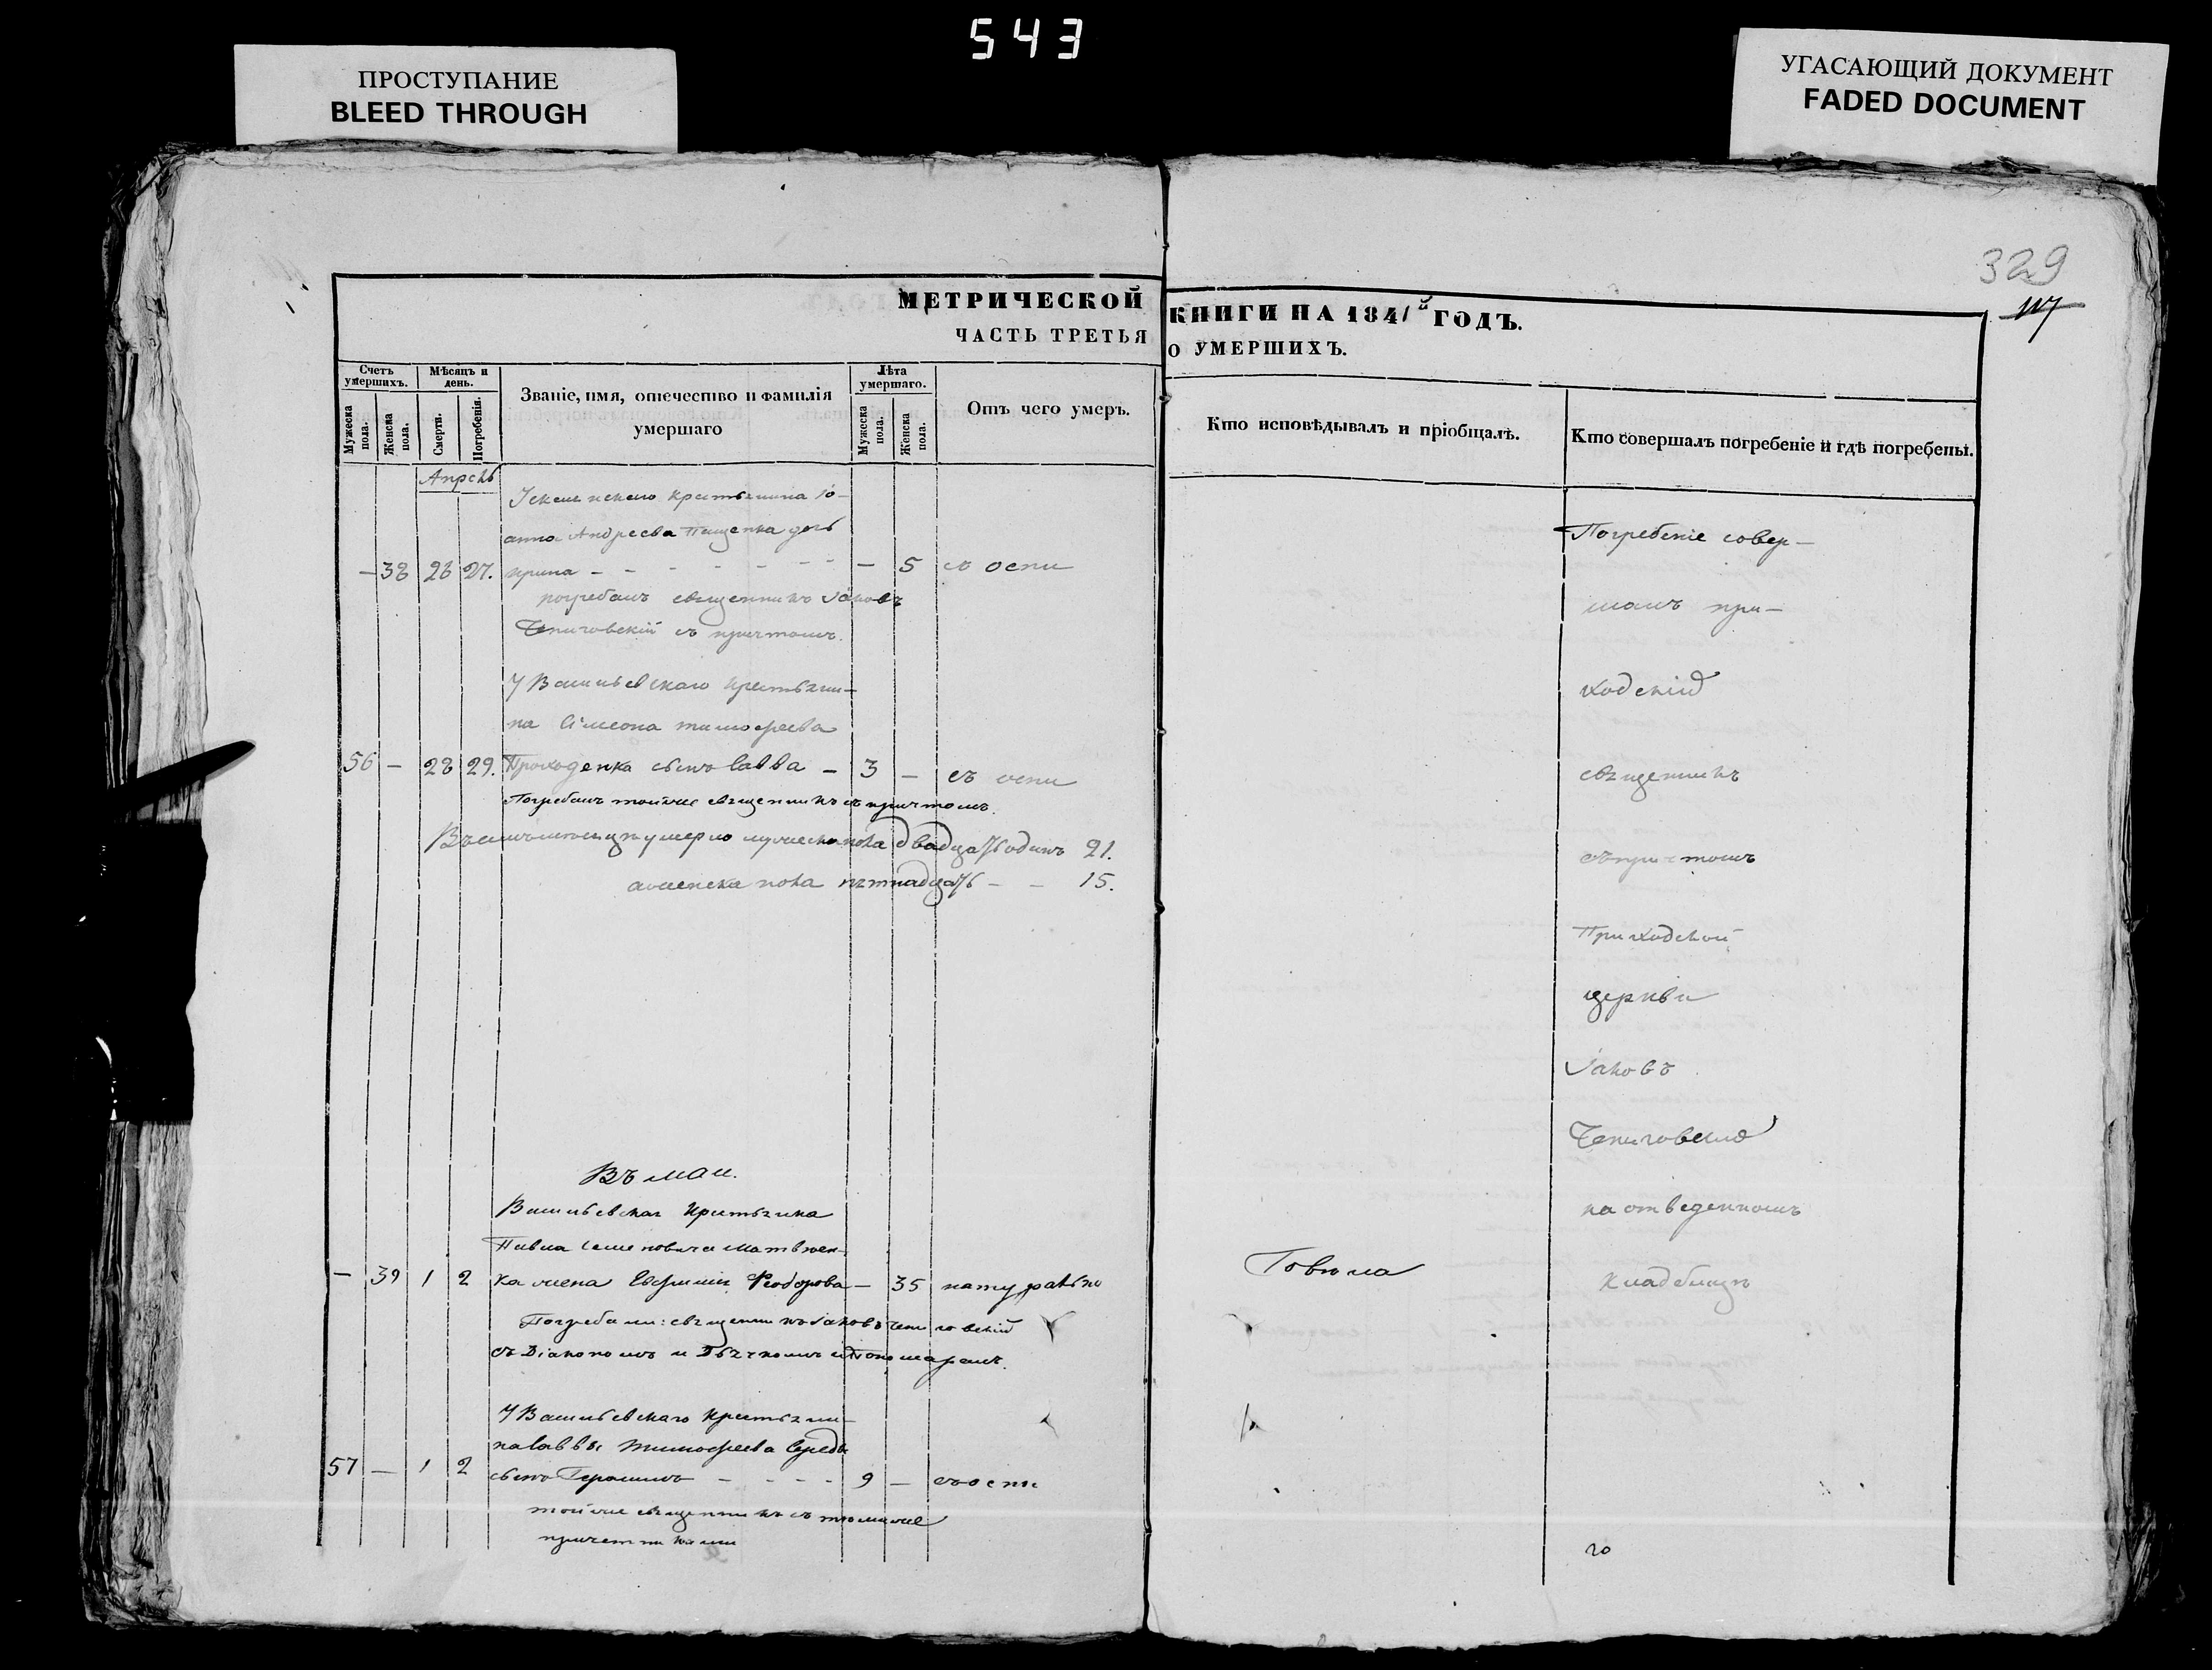 543
ПРОСТУПАНИЕ
BLEED THROUGH
УГАСАЮЩИЙ ДОКУМЕНТ
FADED DOCUMENT
329
МЕТРИЧЕСКОЙ КНИГИ НА 1841й ГОДЪ.
ЧАСТЬ ТРЕТЬЯ О УМЕРШИХЪ.
Счетъ умершихъ.
Мужеска пола.
Женска пола.
Мѣсяцъ и день.
Смерти.
Погребенія.
Званіе, имя, отечество и фамилія умершаго
Лѣта умершаго.
Мужеска пола.
Женска пола.
Отъ чего умеръ.
Кто исповѣдывалъ и пріобщалъ.
Кто совершалъ погребеніе и гдѣ погребены.
Апрель
крестьянина Іо-
анна Андреева Пащенка дочь
— 38 26 27. ирина — — 5 съ оспи
погребалъ священникъ Іаковъ
Чепиговскій съ причтомъ.
У Васильевскаго крестьяни-
на Сімеона тимофеева
56 — 28 29. Проходенка сынъ Савва — 3 — съ оспи
Погребалъ тойже священникъ съ причтомъ.
Въ семъ месяцѣ умерло мужеска пола двадцать одинъ 21.
а женска пола пятнадцать — — 15.
Въ маи.
Васильевская крестьянка
Павла Семеновича Матвѣен-
— 39 1 2 ка жена Евфимія Феодорова — 35 натурально
Погребали: священникъ Іаковъ Чепиговскій
съ Діакономъ и Дьячкомъ и Пономаремъ.
У Васильевскаго крестьяни-
на Саввы тимофеева Середы
57 — 1 2 сынъ Герасимъ — — — — 9 — съ оспи
тойже священникъ съ темиже
причетниками
Говѣла
Погребеніе совер-
шалъ при-
ходскій
священникъ
съ причтомъ
Приходской
церкви
Іаковъ
Чепиговскій
на отведенномъ
кладбищѣ
го